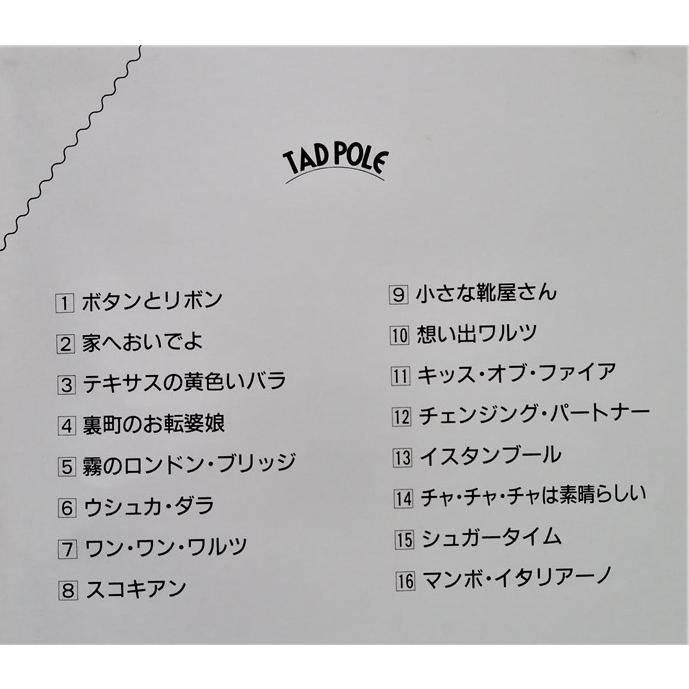 TAD POLE
1 ボタンとリボン
2 家へおいでよ
3 テキサスの黄色いバラ
4 裏町のお転婆娘
5 霧のロンドン・ブリッジ
6 ウシュカ・ダラ
7 ワン・ワン・ワルツ
8 スコキアン
9 小さな靴屋さん
10 想い出ワルツ
11 キッス・オブ・ファイア
12 チェンジング・パートナー
13 イスタンブール
14 チャ・チャ・チャは素晴らしい
15 シュガータイム
16 マンボ・イタリアーノ